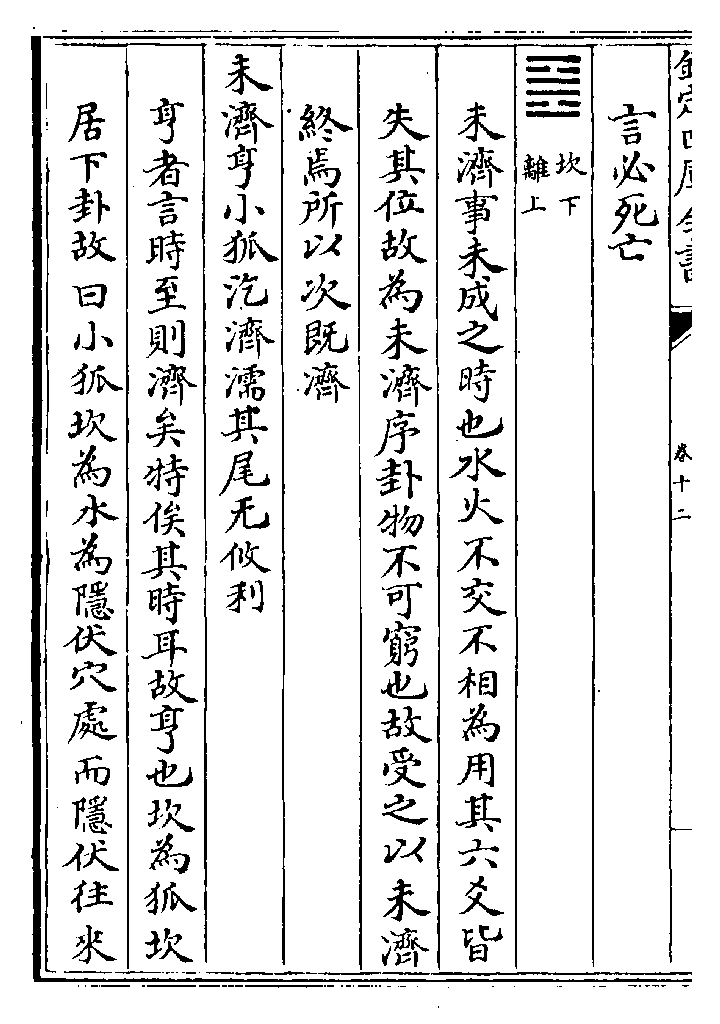 欽定四庫全書
卷十二
言必死亡
䷿
坎下
離上
未濟事未成之時也水火不交不相為用其六爻皆
失其位故為未濟序卦物不可窮也故受之以未濟
終焉所以次既濟
未濟亨小狐汔濟濡其尾无攸利
亨者言時至則濟矣特俟其時耳故亨也坎為狐坎
居下卦故曰小狐坎為水為隱伏穴處而隱伏往來